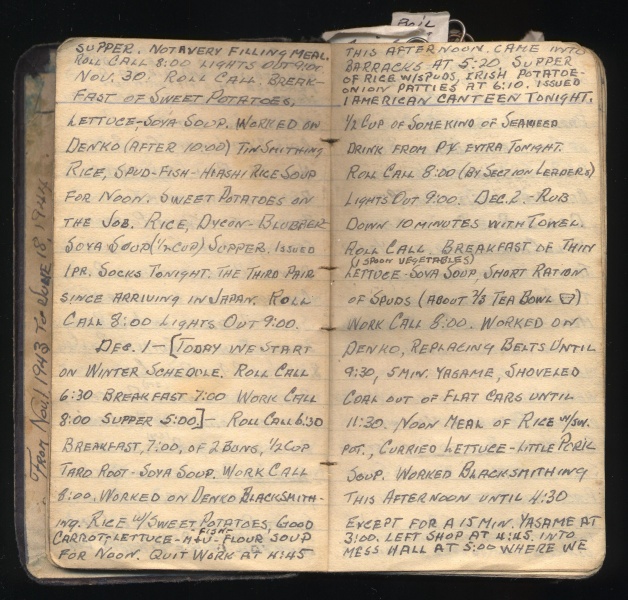 BOIL
FROM NOV. 1943 TO JUNE 18, 1944
SUPPER. NOT A VERY FILLING MEAL.
ROLL CALL 8:00 LIGHTS OUT 9:00
NOV. 30. ROLL CALL. BREAK-
FAST OF SWEET POTATOES,
LETTUCE-SOYA SOUP. WORKED ON
DENKO (AFTER 10:00) TINSMITHING
RICE, SPUD-FISH-HIASHI RICE SOUP
FOR NOON. SWEET POTATOES ON
THE JOB. RICE, DYCON-BLUBBER
SOYA SOUP (1/2 CUP) SUPPER. ISSUED
1 PR. SOCKS TONIGHT. THE THIRD PAIR
SINCE ARRIVING IN JAPAN. ROLL
CALL 8:00 LIGHTS OUT 9:00.
DEC. 1 - [TODAY WE START
ON WINTER SCHEDULE. ROLL CALL
6:30 BREAKFAST 7:00 WORK CALL
8:00 SUPPER 5:00] - ROLL CALL 6:30
BREAKFAST, 7:00, OF 2 BUNS, 1/2 CUP
TARO ROOT-SOYA SOUP. WORK CALL
8:00. WORKED ON DENKO BLACKSMITH-
ING. RICE W/SWEET POTATOES, GOOD
CARROT-LETTUCE- -FLOUR SOUP
FOR NOON. QUIT WORK AT 4:45
THIS AFTERNOON. CAME INTO
BARRACKS AT 5:20. SUPPER
OF RICE W/SPUDS, IRISH POTATOE-
ONION PATTIES AT 6:10. ISSUED
1 AMERICAN CANTEEN TONIGHT.
1/2 CUP OF SOME KIND OF SEAWEED
DRINK FROM PX EXTRA TONIGHT.
ROLL CALL 8:00 (BY SECTION LEADERS)
LIGHTS OUT 9:00. DEC. 2.- RUB
DOWN 10 MINUTES WITH TOWEL.
ROLL CALL. BREAKFAST OF THIN
(1 SPOON VEGETABLES)
LETTUCE-SOYA SOUP, SHORT RATION
OF SPUDS (ABOUT 2/3 TEA BOWL)
WORK CALL 8:00. WORKED ON
DENKO, REPLACING BELTS UNTIL
9:30, 5 MIN. YASAME, SHOVELED
COAL OUT OF FLAT CARS UNTIL
11:30. NOON MEAL OF RICE W/SW.
POT., CURRIED LETTUCE-LITTLE PORK
SOUP. WORKED BLACKSMITHING
THIS AFTERNOON UNTIL 4:30
EXCEPT FOR A 15 MIN. YASAME AT
3:00. LEFT SHOP AT 4:45. INTO
MESS HALL AT 5:00 WHERE WE